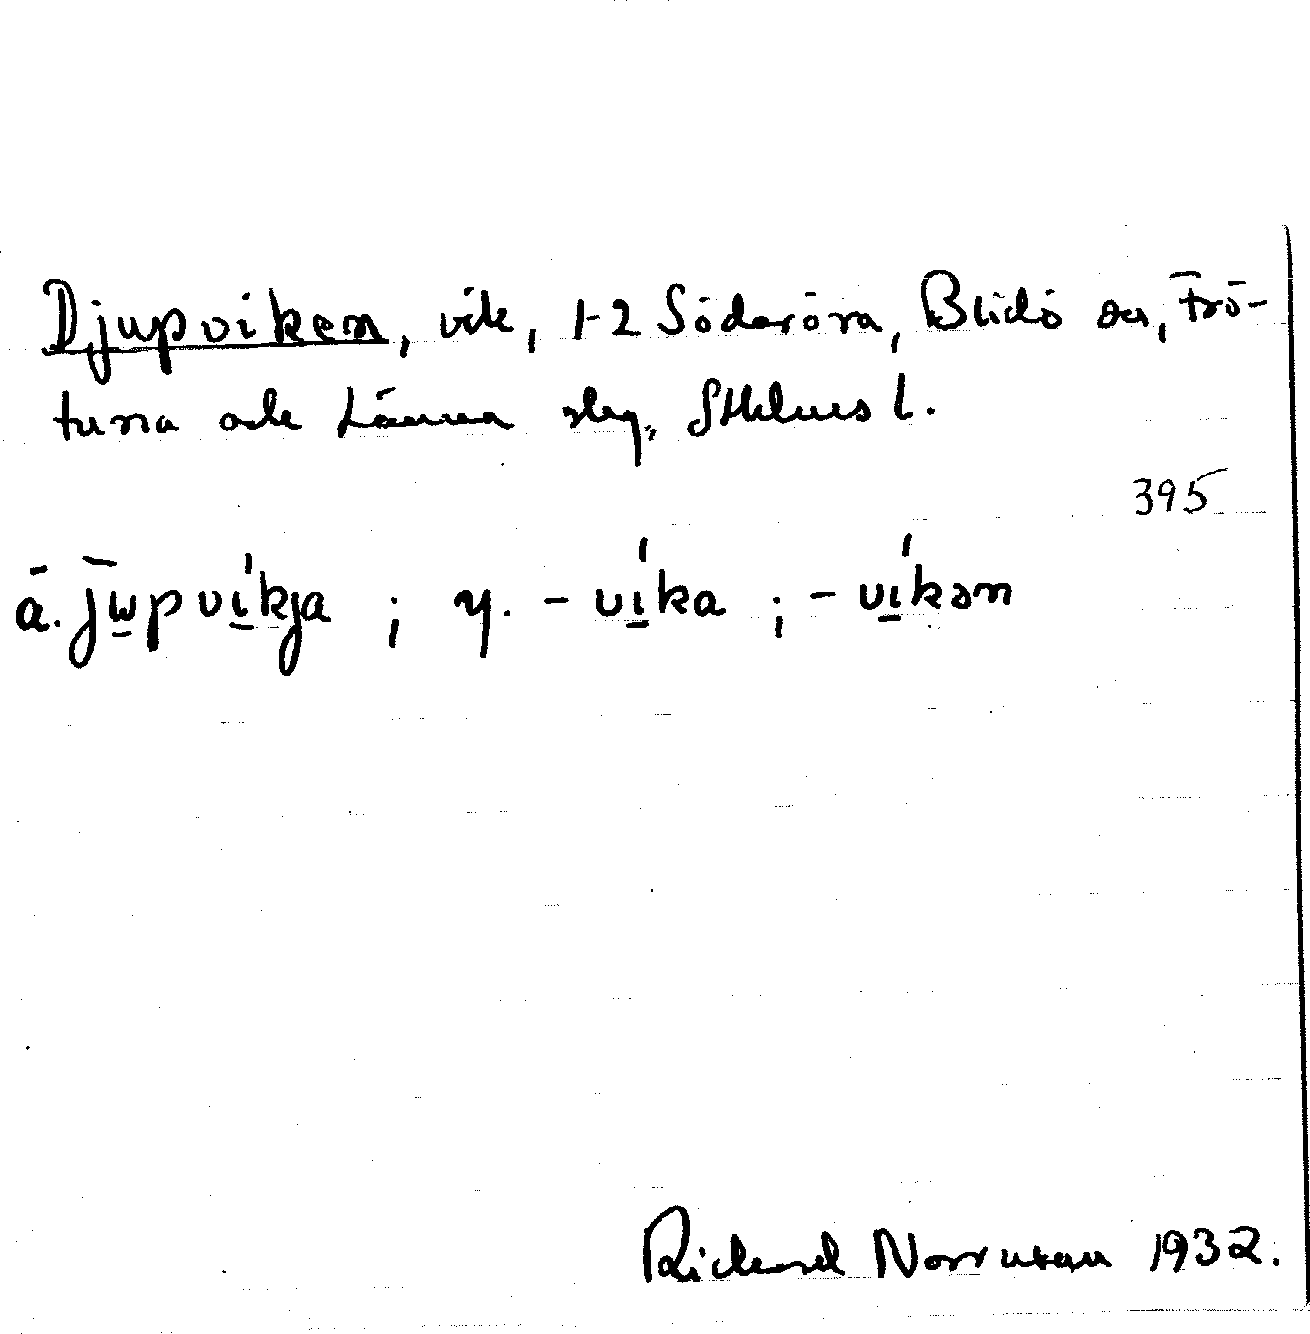 Djupviken, vik, 1-2 Söderöra, Blidö sn, Frö-
tuna och Länna slg, Sthlms l.
395
ä. jupvikja ; y. -vika ; -vikən
Rickard Norrman 1932.